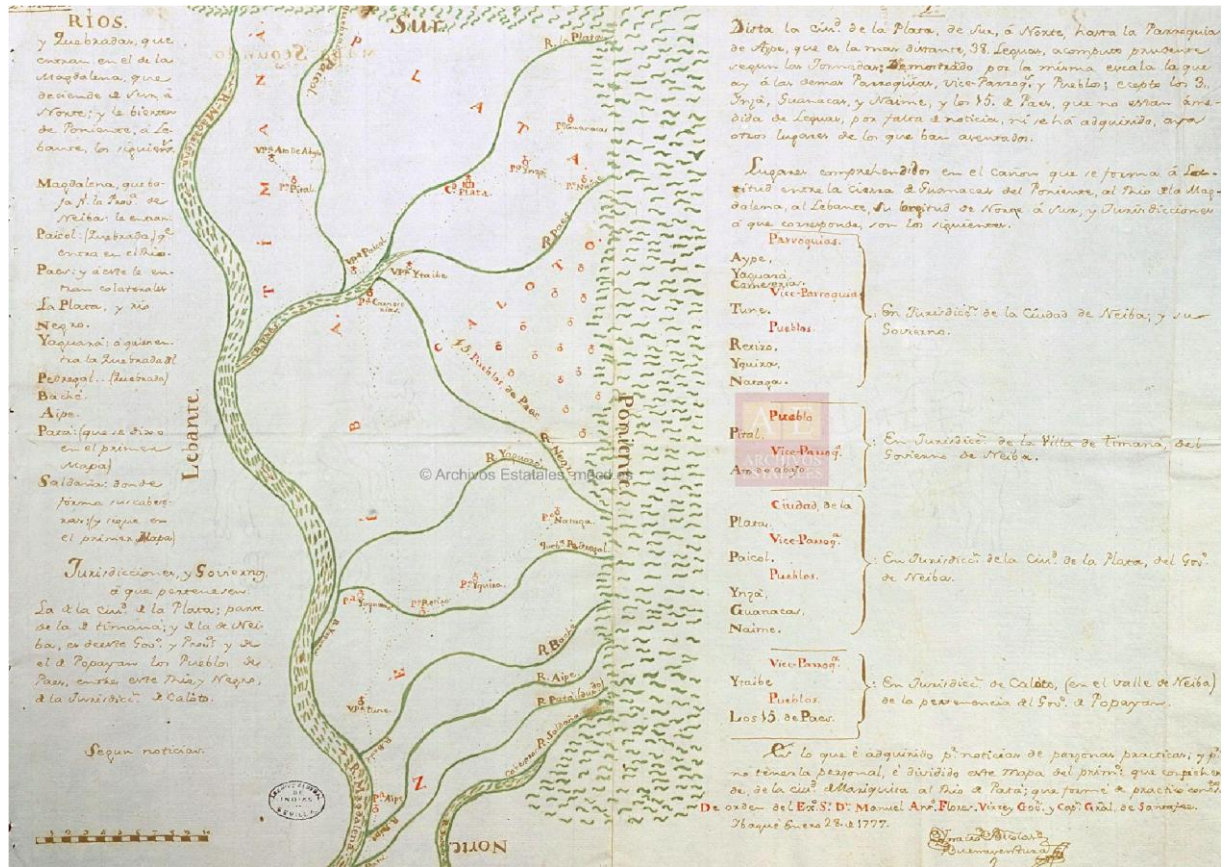 RÍOS.
y Quebradas, que
entran en el de la
Magdalena, que
deciende de Sur, á
Norte; y le bienen
de Poniente, á Le-
bante, los siguientes.
Magdalena, que to-
de
Neiba: le entran
Paicol: (Quebrada) qe.
entra en el Rio.
Paes: y á este le en-
tran colaterales
La Plata, y rio
Negro.
Yaguará: á quien en-
tra la Quebrada del
Pedregal. (Quebrada)
Baché.
Aipe.
Patá: (que se dixo
en el primer
Mapa)
Saldaña: donde
forma sus cabe-
y sigue en
el primer Mapa)
Jurisdicciones, y Govierno,
á que pertenesen.
La d la Ciud. d la Plata; parte
de la d timana; y d la de Nei-
ba, es de este Gov. y
el d Popayan los Pueblos de
Paes, entre este Rio y Negro,
d la Jurisdicc. d Caloto.
Segun noticias.
Sur.
Lebante.
Poniente.
Norte
R. Magdalena
Paicol.
R. la Plata
R. Paes
TIMANÁ
PLATA
CALOTO
NEIBA
VPa. Am de Abajo
Po. Pital.
Cd. Plata.
Po. Guanacas
Po. Ynzá
Po. Naime
VPa. Paicol
VPa. Ytaibe
Pa. Carneserias.
15. Pueblos de Paes
R. Paes
R. Negro
R. Yaguará
Po. Nataga.
Quebra. Pedregal.
Po. Yquira.
Po. Retiro
Pa. Yaguará
R. Baché
R. Aipe.
R. Patá: (dudo)
Cabezas R. Saldaña
VPa. Tune.
Pa. Aipe
R. Magdalena
ARCHIVO GENERAL
DE
INDIAS
SEVILLA
© Archivos Estatales, mecd.es
ARCHIVOS
ESTATALES
Dista la Ciud. de la Plata, de Sur, á Norte, hasta la Parroquia
de Aype, que es la mas distante, 38. Leguas, a computo prudente
segun las Jornadas; Demostrado por la misma escala la que
ay á las demas Parroquias, Vice-Parroqs. y Pueblos; ecepto los 3,
Ynzá, Guanacas, y Naime, y los 15. d Paes, que no estan á me-
dida de Leguas, por falta d noticia, ni se há adquirido, aya
otros lugares de los que ban asentados.
Lugares comprehendidos en el Cañon que se forma á
entre la Cierra d Guanacas del Poniente, al Rio d la Mag-
dalena, al Lebante, Su longitud de Norte á Sur, y Jurisdicciones
á que corresponde, son los siguientes.
Parroquias.
Aype,
Yaguará.
Carneserias.
Vice-Parroquia
Tune.
Pueblos.
Retiro,
Yquira,
Nataga.
: En Jurisdicc. de la Ciudad de Neiba; y su
Govierno.
Pueblo
Pital.
Vice-Parroqa.
Am de abajo
: En Jurisdicc. de la Villa de timaná, del
Govierno de Neiba.
Ciudad, de la
Plata.
Vice-Parroqa.
Paicol,
Pueblos.
Ynzá,
Guanacas,
Naime.
: En Jurisdicc. de la Ciud. de la Plata, del Gov.
de Neiba.
Vice-Parroqa.
Ytaibe
Pueblos.
Los 15. de Paes.
: En Jurisdicc. de Calóto, (en el valle de Neiba)
de la pertenencia del Gov. d Popayan.
Es lo que é adquirido pr. noticias de personas practicas, y pr.
no tenerla personal, é dividido este Mapa del primo. que comprehen-
de, de la Ciud. d Mariquita al Rio d Patá; que formé d practico
De orden del Exo. Sr. Dn. Manuel Anto. Flores, Virey, Govr. y Capn. Gral. de Santa Fee.
Ybagué Enero 28. d 1777.
Buenaventura